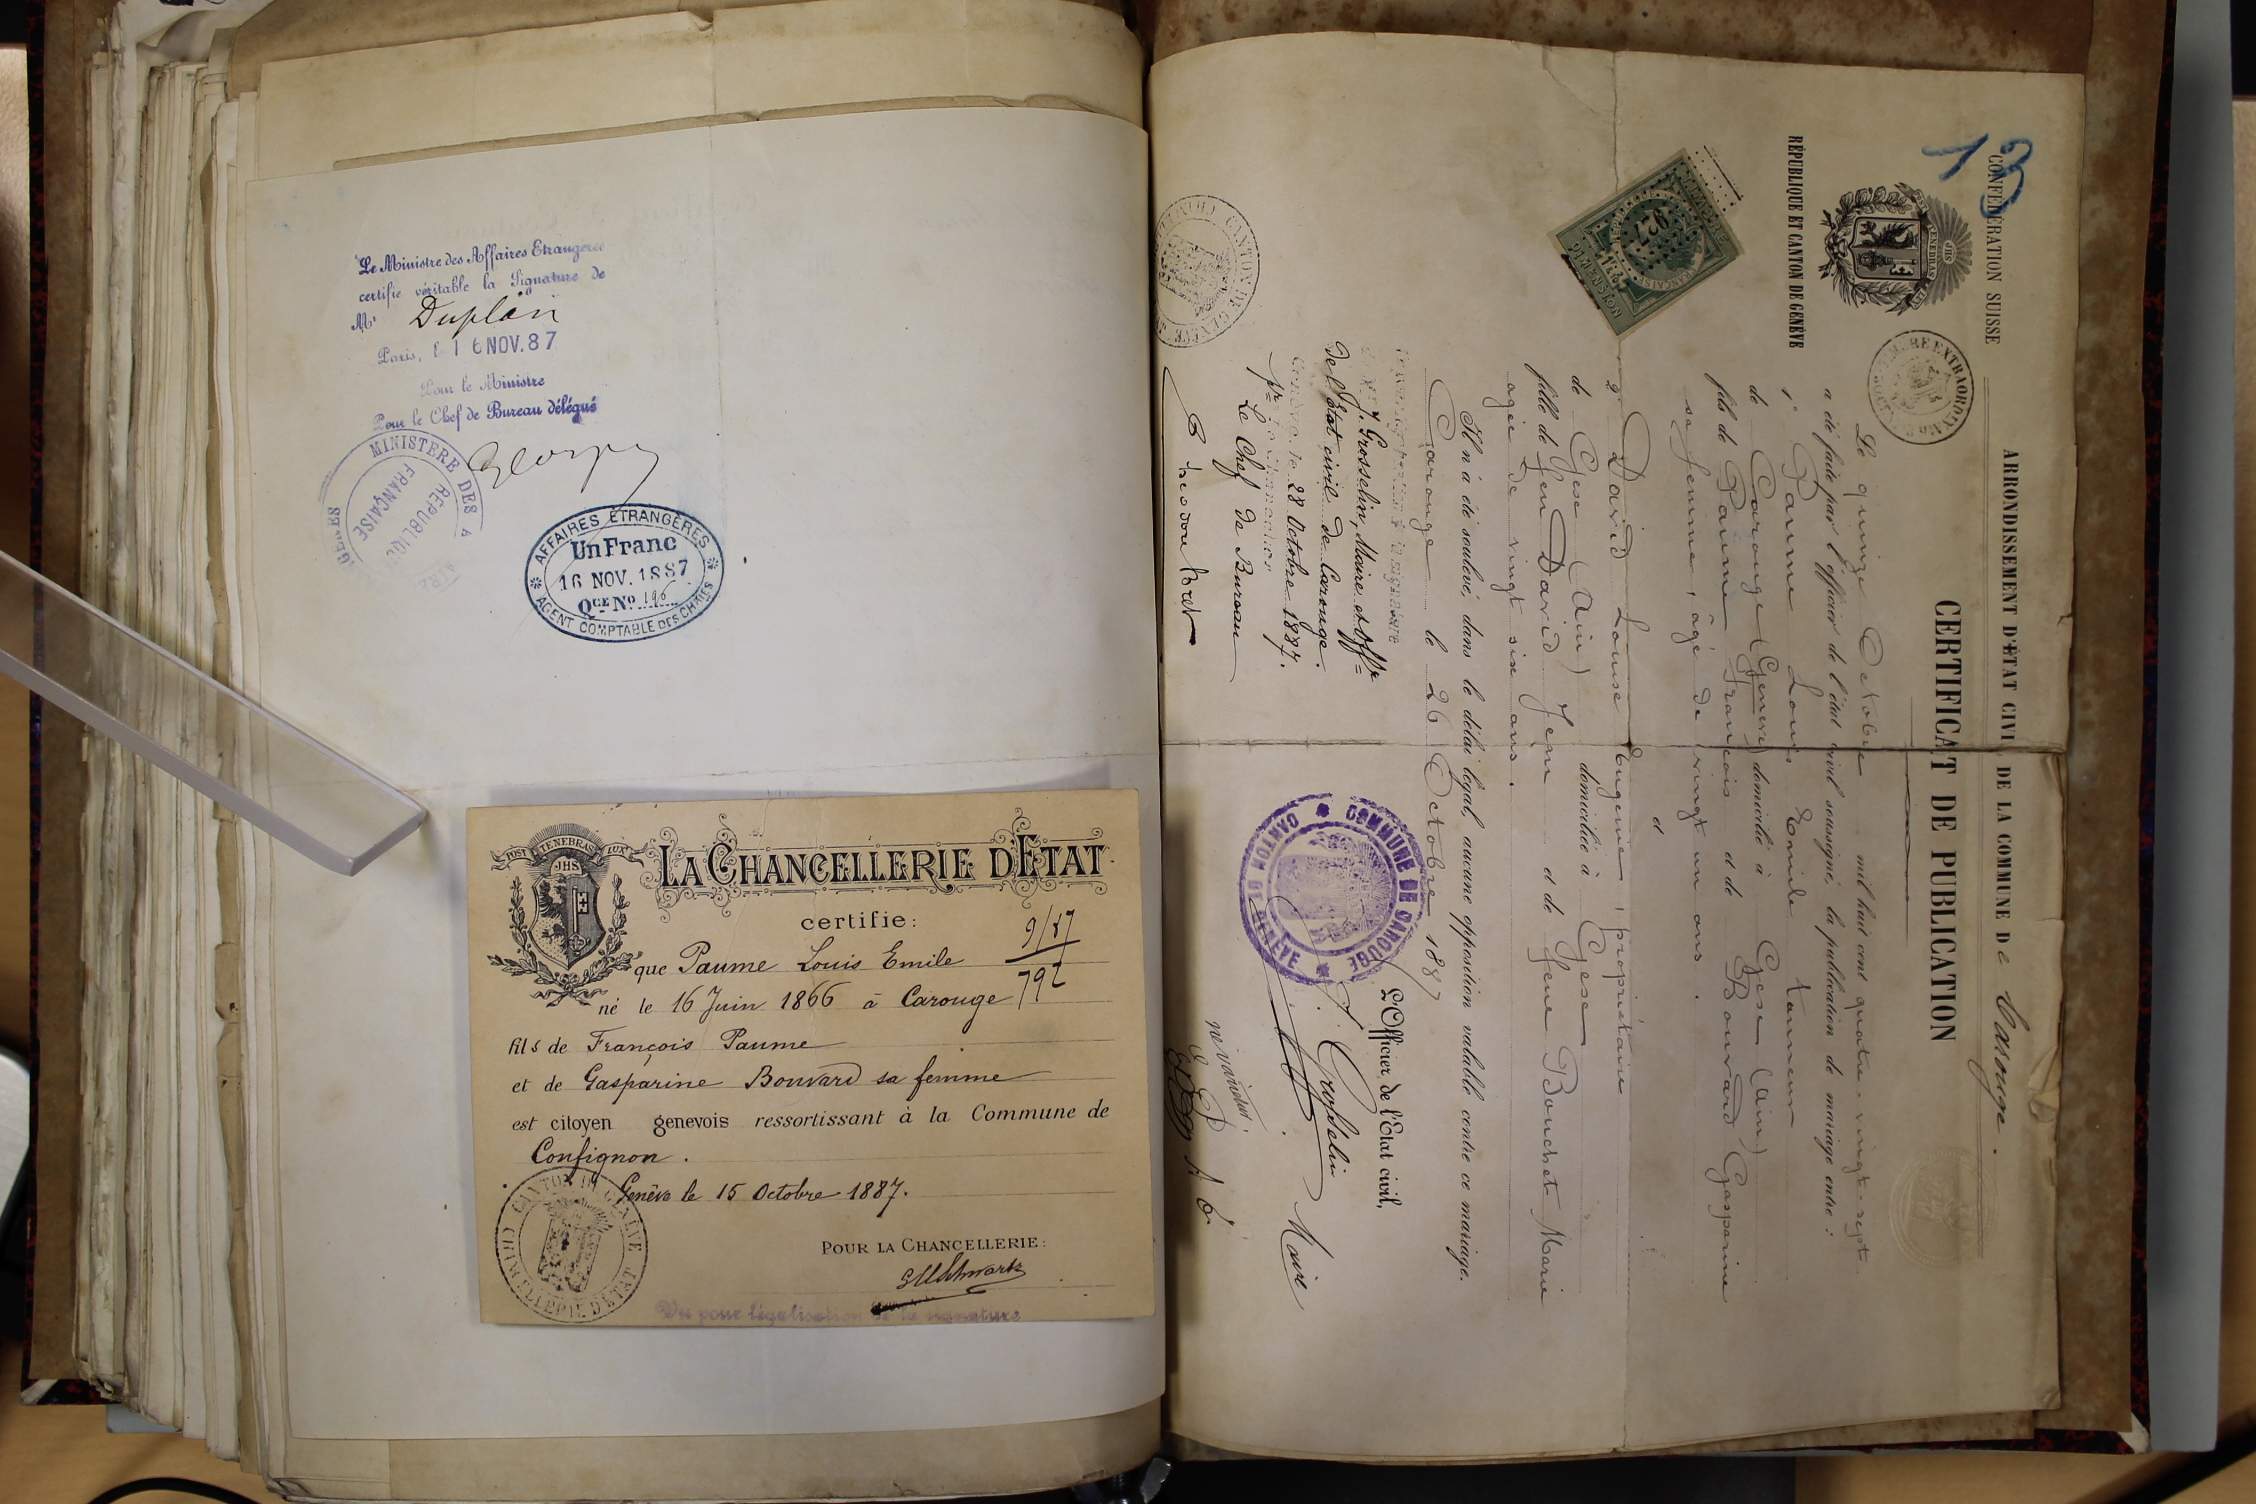 Le Ministre des Affaires Etrangères
certifie véritable la Signature de
Mr Duplan
Paris, le 16 NOV. 87
Pour le Ministre
Pour le Chef de Bureau délégué
MINISTERE DES
REPUBLIQUE
FRANÇAISE
AFFAIRES ÉTRANGÈRES
Un Franc
16 NOV. 1887
Qce No 196
AGENT COMPTABLE DES CHANC
POST TENEBRAS LUX
JHS
LA CHANCELLERIE D'ETAT
certifie:
9/87
792
que Paume Louis Emile
né le 16 Juin 1866 à Carouge
fils de François Paume
et de Gasparine Bouvard sa femme
est citoyen genevois ressortissant à la Commune de
Confignon.
Genève le 15 Octobre 1887.
CANTON DE GENÈVE
CHANCELLERIE D'ETAT
POUR LA CHANCELLERIE:
Vu pour légalisation de la signature
13
CONFÉDÉRATION SUISSE
POST TENEBRAS LUX
JHS
RÉPUBLIQUE ET CANTON DE GENÈVE
ARRONDISSEMENT D'ÉTAT CIVIL DE LA COMMUNE De Carouge.
CERTIFICAT DE PUBLICATION
Le quinze Octobre mil huit cent quatre-vingt-sept
a été faite par l'officier de l'état civil soussigné, la publication de mariage entre:
1° Paume Louis Emile tanneur
de Carouge (Genève) domicilié à Gex (Ain)
fils de Paume François et de Bouvard Gasparine
sa femme, âgé de vingt un ans.
et
2° David Louise Eugénie, propriétaire
de Gex (Ain) domiciliée à Gex
fille de feu David Jean et de feue Bouchet Marie
agée de vingt six ans.
Il n'a été soulevé, dans le délai légal, aucune opposition valable contre ce mariage.
Carouge le 26 Octobre 1887
L'Officier de l'État civil,
J. Grosselin Maire
COMMUNE DE CAROUGE
CANTON DE GENÈVE
J. Grosselin, Maire et Offr
de l'Etat civil de Carouge.
Genève, le 28 Octobre 1887.
pr la Chancellerie
Le Chef de Bureau
Théodore Bret
ne varietur.
CANTON DE GENÈVE
927